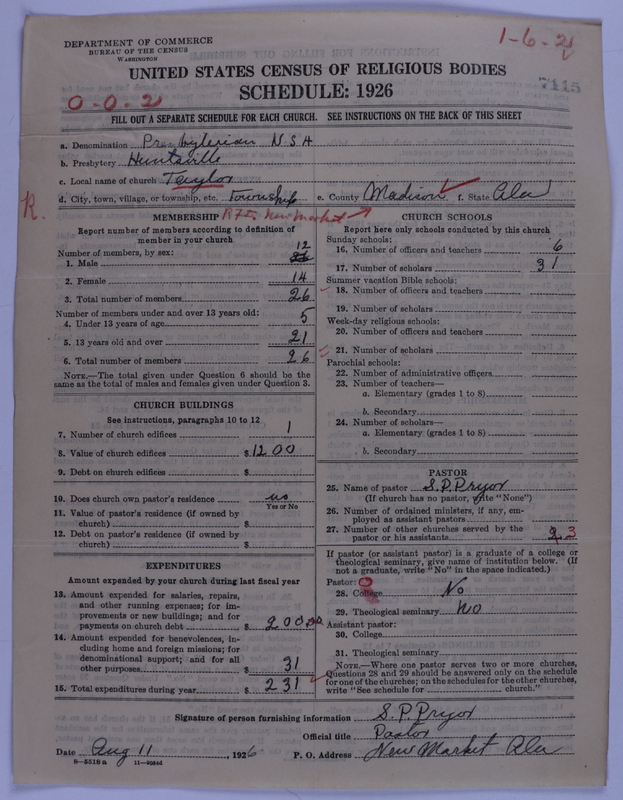 DEPARTMENT OF COMMERCE
BUREAU OF THE CENSUS
WASHINGTON
1-6-2
UNITED STATES CENSUS OF RELIGIOUS BODIES
SCHEDULE: 1926
7115
0-0-2
FILL OUT A SEPARATE SCHEDULE FOR EACH CHURCH. SEE INSTRUCTIONS ON THE BACK OF THIS SHEET
a. Denomination Presbyterian U S A
b. Presbytery Huntsville
c. Local name of church Taylor
d. City, town, village, or township, etc. Township e. County Madison f. State Ala
R.
New Market
MEMBERSHIP
Report number of members according to definition of member in your church
Number of members, by sex:
1. Male 12
2. Female 14
3. Total number of members 26
Number of members under and over 13 years old:
4. Under 13 years of age 5
5. 13 years old and over 21
6. Total number of members 26
NOTE.—The total given under Question 6 should be the
same as the total of males and females given under Question 3.
CHURCH BUILDINGS
See instructions, paragraphs 10 to 12
7. Number of church edifices 1
8. Value of church edifices $ 1200
9. Debt on church edifices $
10. Does church own pastor's residence no
Yes or No
11. Value of pastor's residence (if owned by
church) $
12. Debt on pastor's residence (if owned by
church) $
EXPENDITURES
Amount expended by your church during last fiscal year
13. Amount expended for salaries, repairs,
and other running expenses; for im-
provements or new buildings; and for
payments on church debt $ 200 00
14. Amount expended for benevolences, in-
cluding home and foreign missions; for
denominational support; and for all
other purposes $ 31
15. Total expenditures during year $ 231
CHURCH SCHOOLS
Report here only schools conducted by this church
Sunday schools:
16. Number of officers and teachers 6
17. Number of scholars 31
Summer vacation Bible schools:
18. Number of officers and teachers
19. Number of scholars
Week-day religious schools:
20. Number of officers and teachers
21. Number of scholars
Parochial schools:
22. Number of administrative officers
23. Number of teachers—
a. Elementary (grades 1 to 8)
b. Secondary
24. Number of scholars—
a. Elementary (grades 1 to 8)
b. Secondary
PASTOR
25. Name of pastor S. P. Pryor
(If church has no pastor, write "None")
26. Number of ordained ministers, if any, em-
ployed as assistant pastors
27. Number of other churches served by the
pastor or his assistants 3
If pastor (or assistant pastor) is a graduate of a college or
theological seminary, give name of institution below. (If
not a graduate, write "No" in the space indicated.)
Pastor:
28. College No
29. Theological seminary No
Assistant pastor:
30. College
31. Theological seminary
NOTE.—Where one pastor serves two or more churches,
Questions 28 and 29 should be answered only on the schedule
for one of the churches; on the schedules for the other churches,
write "See schedule for church."
Signature of person furnishing information S. P. Pryor
Official title Pastor
Date Aug 11, 1926 P. O. Address New Market Ala
8-5518 a